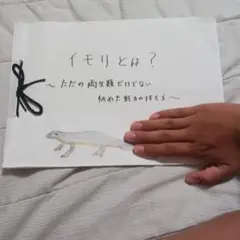 イモリとは？
〜ただの両生類だけでない
秘めた魅力の持ち主〜